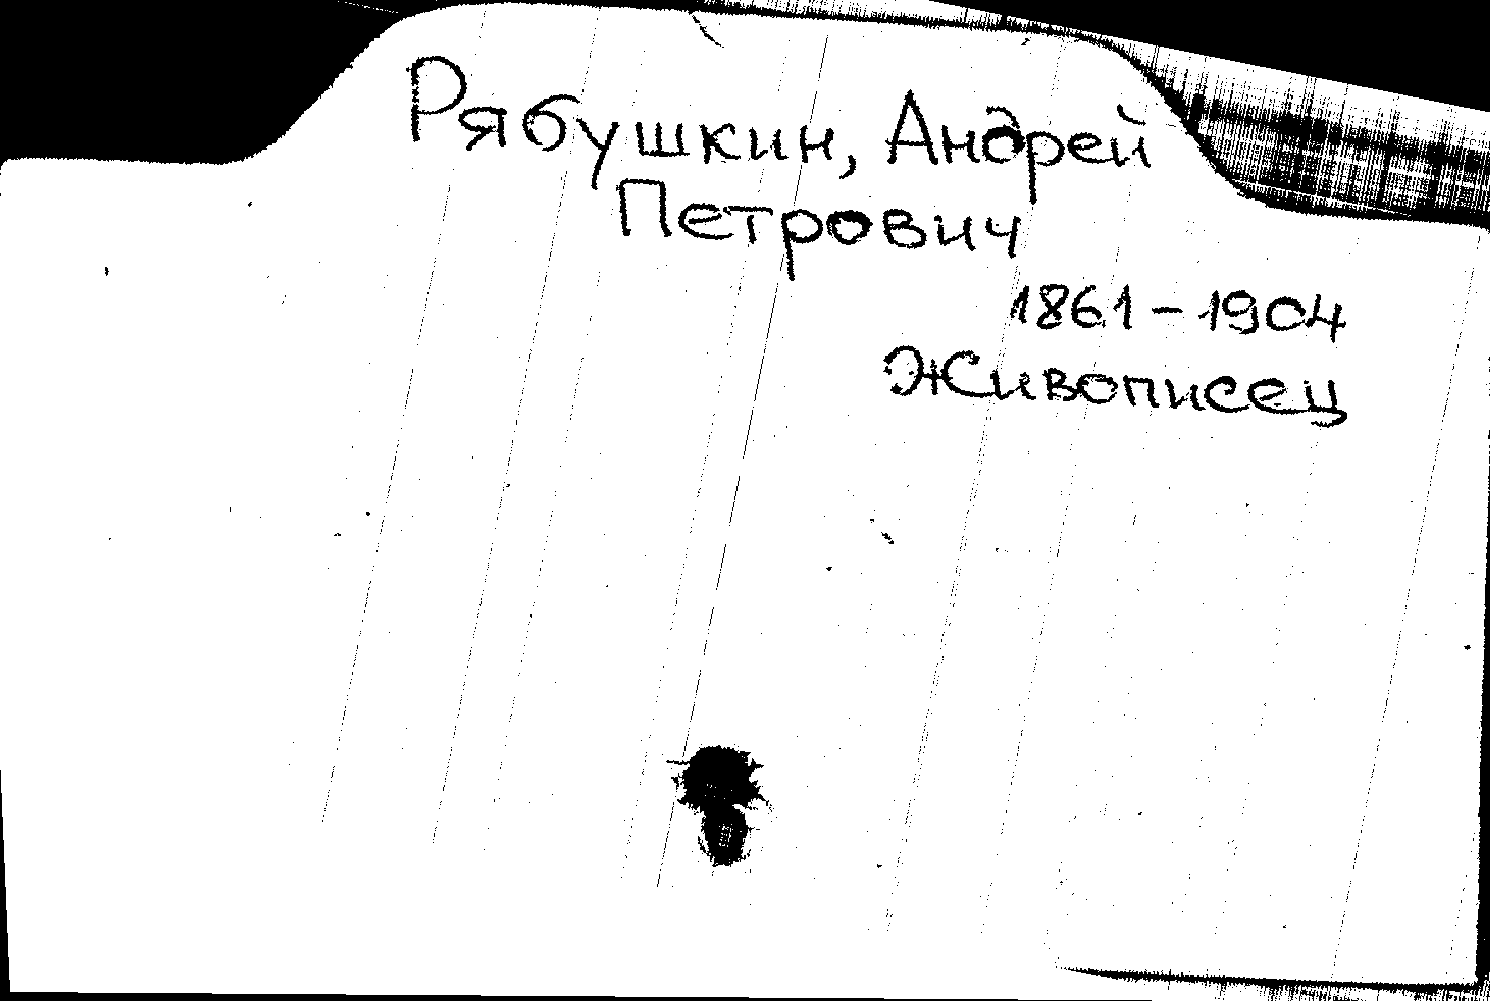 Рябушкин, Андрей
Петрович
1861-1904
Живописец